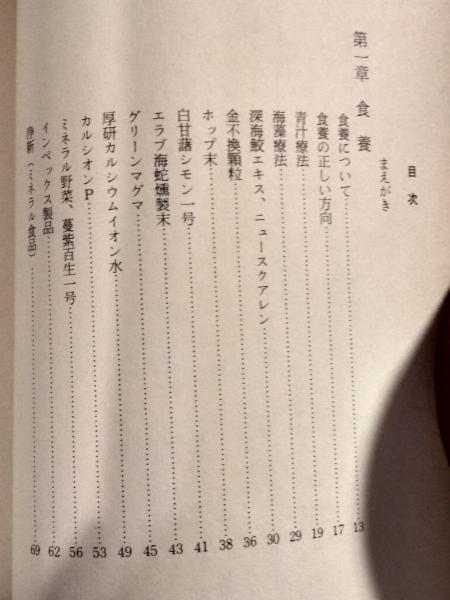 目次
まえがき
第一章 食養
食養について……13
食養の正しい方向……17
青汁療法……19
海藻療法……29
深海鮫エキス、ニュースクアレン……30
金不換顆粒……36
ホップ末……38
白甘藷シモン一号……41
エラブ海蛇燻製末……43
グリーンマグマ……45
厚研カルシウムイオン水……49
カルシオンP……53
ミネラル野菜、蔓紫百生一号……56
インペックス製品……62
浄新（ミネラル食品）……69